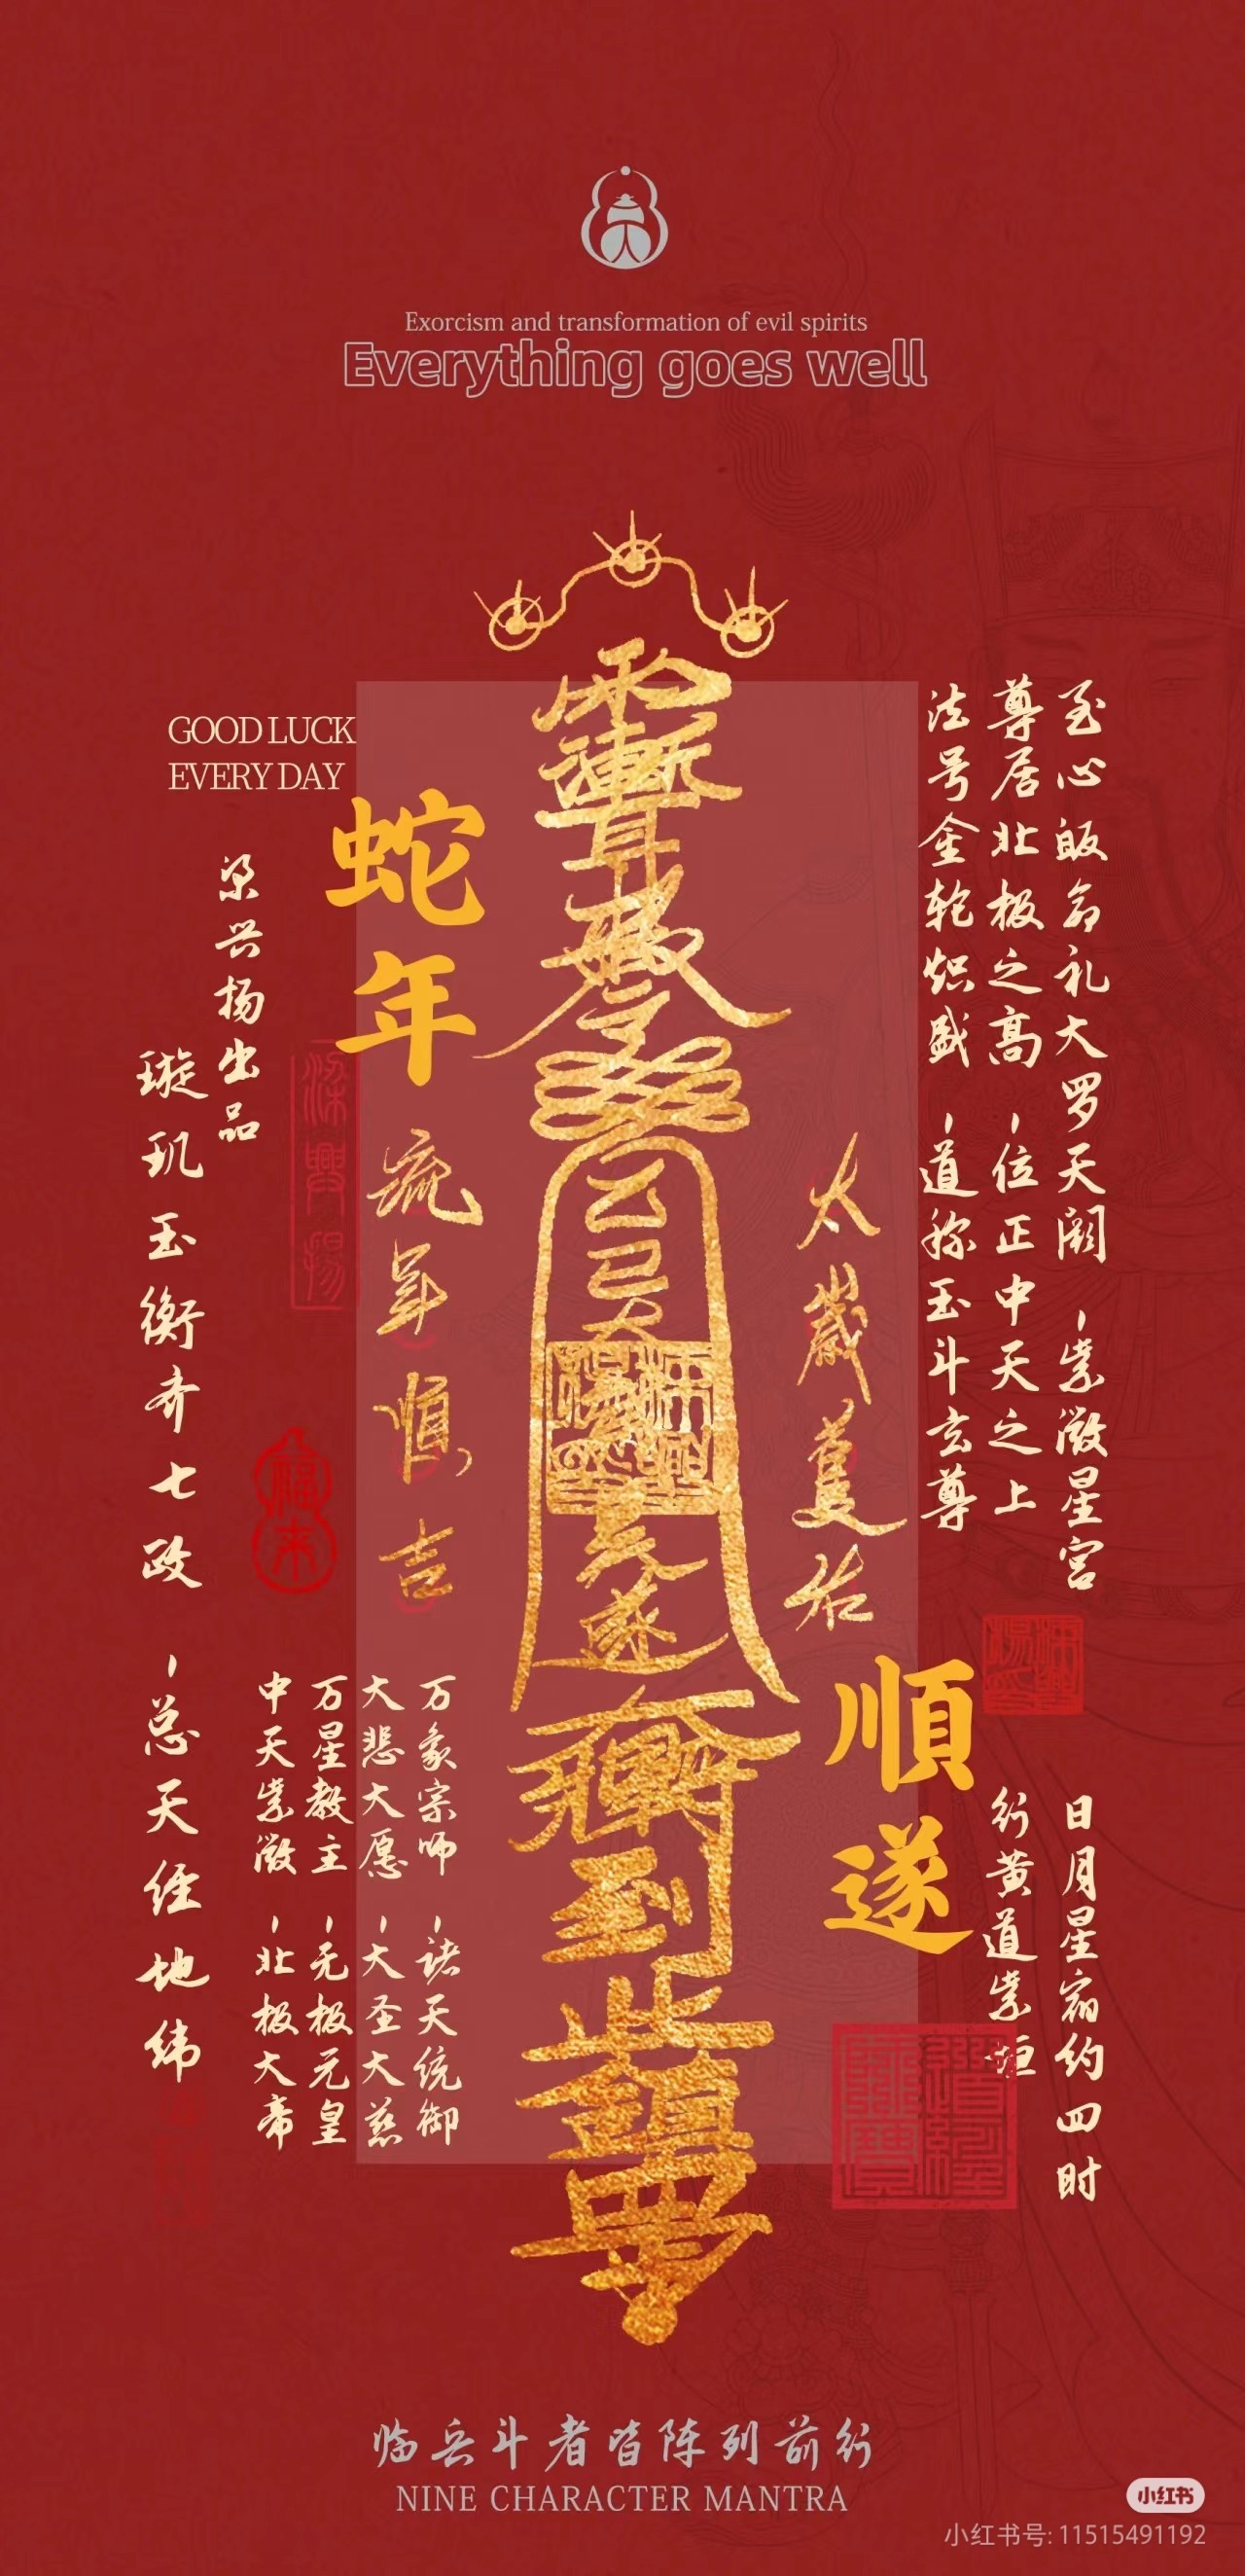 Exorcism and transformation of evil spirits
Everything goes well
GOOD LUCK
EVERY DAY
蛇年
順遂
至心皈命礼大罗天阙，紫微星宫
尊居北极之高，位正中天之上
法号金轮炽盛，道称玉斗玄尊
太歲護佑
流年順吉
梁兴扬出品
日月星宿约四时
行黄道紫垣
璇玑玉衡齐七政，总天经地纬
万象宗师，诸天统御
大悲大愿，大圣大慈
万星教主，无极元皇
中天紫微，北极大帝
梁興揚
福来
道經師寶
临兵斗者皆阵列前行
NINE CHARACTER MANTRA
小红书
小红书号: 11515491192